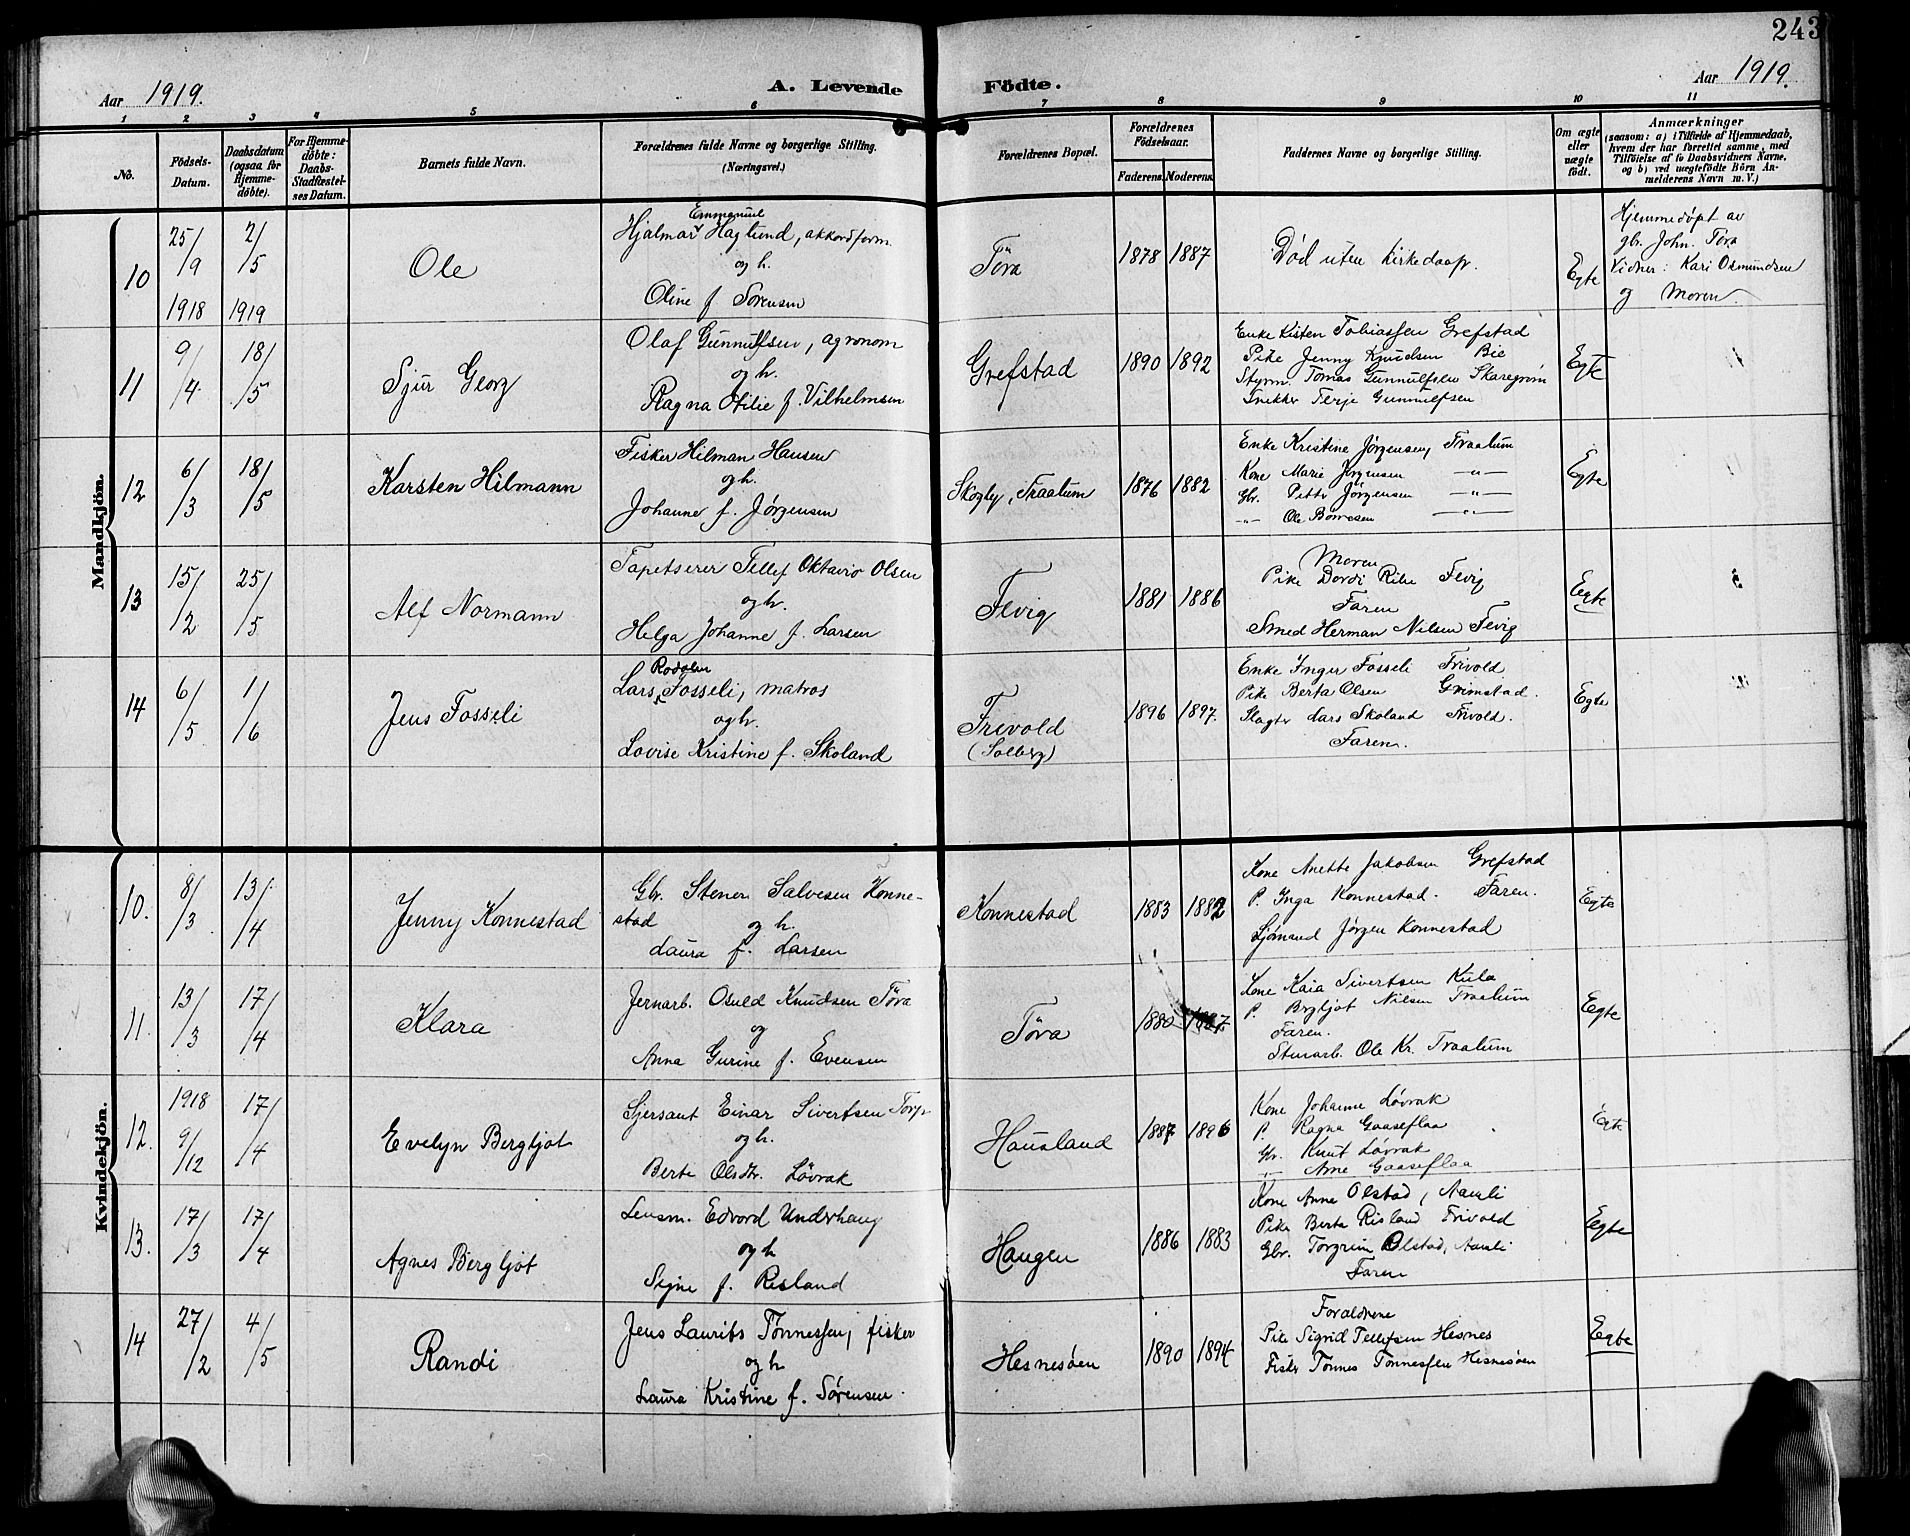 243
Aar 1919.
A. Levende Födte.
Aar 1919.
1 2 3 4 5 6 7 8 9 10 11
No.
Födsels-Datum.
Daabsdatum (ogsaa for Hjemme-döbte).
For Hjemme-döbte: Daabs-Stadfæstel-ses Datum.
Barnets fulde Navn.
Forældrenes fulde Navne og borgerlige Stilling.
(Næringsvei.)
Forældrenes Bopæl.
Forældrenes Födselsaar.
Faderens. Moderens.
Faddernes Navne og borgerlige Stilling.
Om ægte eller uægte födt.
Anmærkninger
(saasom: a) i Tilfælde af Hjemmedaab,
hvem der har forrettet samme, med
Tilföielse af to Daabsvidners Navne,
og b) ved uægtefödte Börn An-
melderens Navn m. V.)
Mandkjön.
10
25/9 1918
2/5 1919
Ole
Emmanuel
Hjalmar Haglund, akkordform.
og h.
Oline f. Sørensen
Töra
1878 1887
Död uten kirkedaap.
Egte
Hjemmedøpt av
gbr. John. Töra
Vidner: Kari Osmundsen
og Moren.
11
9/4
18/5
Sjur Georg
Olaf Gunnulfsen, agronom
og h.
Ragna Otilie f. Vilhelmsen
Grefstad
1890 1892
Enke Kisten Tobiassen Grefstad
Pike Jenny Knudsen Bie
Styrm. Tomas Gunnulfsen Skaregrøm
Snikker Terje Gunnulfsen
Egte
12
6/3
18/5
Karsten Hilmann
Fisker Hilman Hansen
og h.
Johanne f. Jørgensen
Skogby, Traalum
1876 1882
Enke Kristine Jørgensen, Traalum
Kone Marie Jørgensen -"-
Gbr. Petter Jørgensen -"-
-"- Ole Børresen -"-
Egte
13
15/2
25/5
Alf Normann
Tapetserer Tellef Oktavio Olsen
og h.
Helga Johanne f. Larsen
Fevig
1881 1886
Moren
Pike Dordi Ribe Fevig
Faren
Smed Herman Nilsen Fevig
Egte
14
6/5
1/6
Jens Fosseli
Lars Fosseli, matros
og h.
Lovise Kristine f. Skoland
Frivold
(Solberg)
1896 1897.
Enke Inger Fosseli Frivold
Pike Berta Olsen Grimstad.
Slagter Lars Skoland Frivold.
Faren.
Egte
Kvindekjön.
10.
8/3
13/4
Jenny Konnestad
Gbr. Stener Salvesen Konne-
stad
og h.
Laura f. Larsen
Konnestad
1883 1882
Kone Anette Jakobsen Grefstad
P. Inga Konnestad. Faren.
Sjømand Jørgen Konnestad
Egte
11.
13/3
17/4
Klara
Jernarb. Osuld Knudsen Töra
og
Anna Gurine f. Evensen
Töra
1880 1887.
Kone Kaia Sivertsen Kula
P. Bergljot Nilsen Traalum
Faren.
Stenarb. Ole Kr. Traalum
Egte
12.
1918
9/12
17/4
Evelyn Bergljot
Sjersant Einar Sivertsen Torp
og h.
Berte Olsdtr. Lövrak
Hausland
1887 1896
Kone Johanne Lövrak
P. Ragna Gaaseflaa
Gbr. Knut Lövrak
-"- Arne Gaaseflaa
Egte
13.
17/3
17/4
Agnes Bergljot
Lensm. Edvard Underhaug
og h
Signe f. Risland
Haugen
1886 1883
Kone Anna Olstad, Aamli
Pike Berta Risland Frivold
Gbr. Torgrim Olstad, Aamli
Faren
Egte
14
27/2
4/5
Randi
Jens Laurits Tönnessen, fisker
og h
Laura Kristine f. Sørensen.
Hesnesøen
1890 1894
Forældrene
Pike Sigrid Tellefsen Hesnes
Fisker Tönnes Tönnessen Hesnesøen
Egte